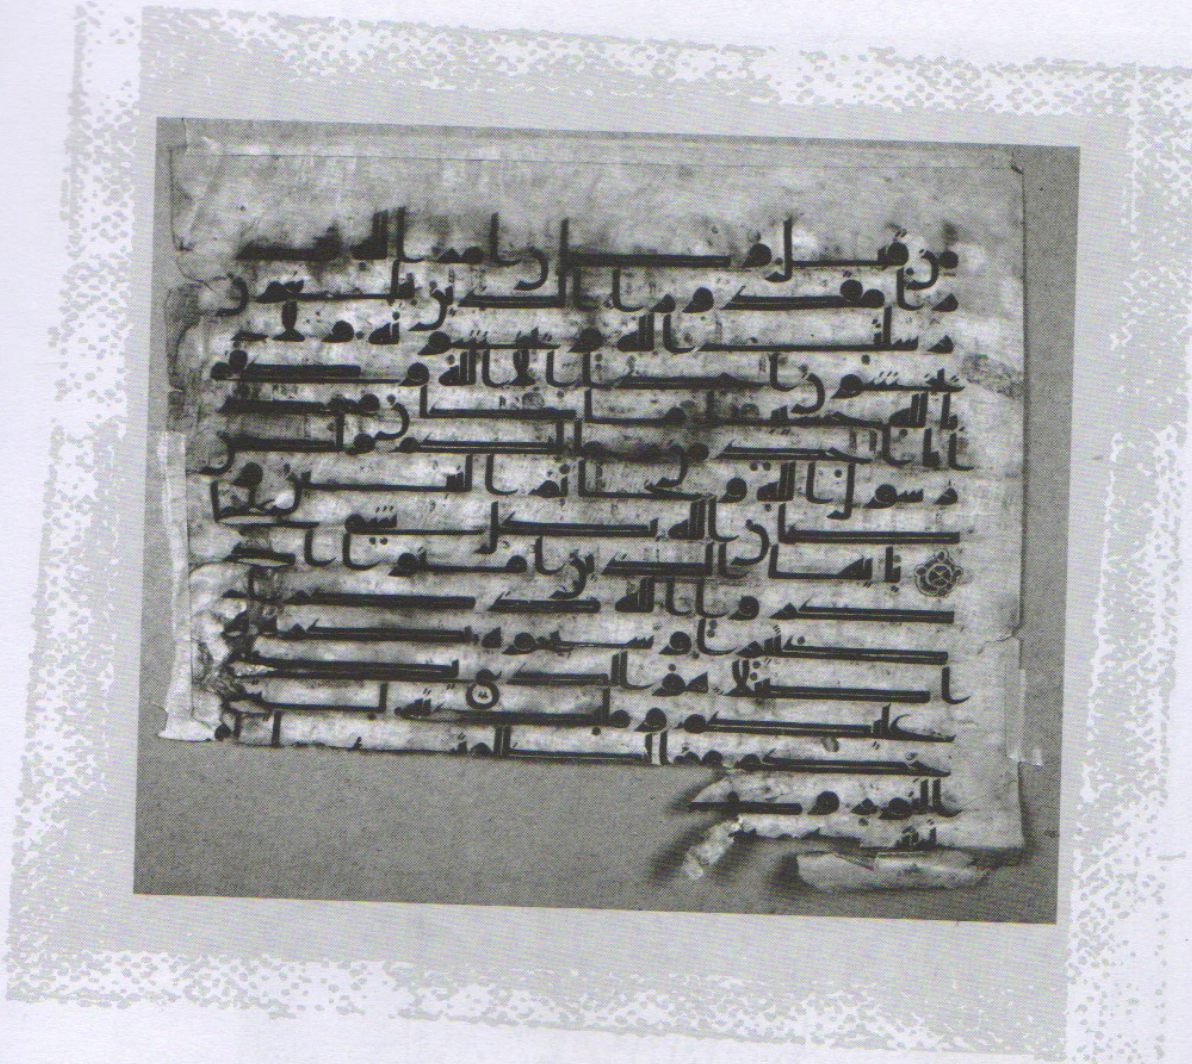 من قبل و كان امر الله قد
را مقدورا الذين يبلغون
رسلت الله ويخشونه ولا
يخشون احدا الا الله وكفى
بالله حسيبا ما كان محمد
ابا احد من رجالكم ولكن ر
سول الله وخاتم النبين و
كان الله بكل شي
يايها الذين امنوا اذ
كروا الله ذكرا
كثيرا وسبحوه بكرة و
اصيلا هو الذي يصلي
عليكم وملئكته ليـ
خرجكم من الظلمت الى
النور وكا